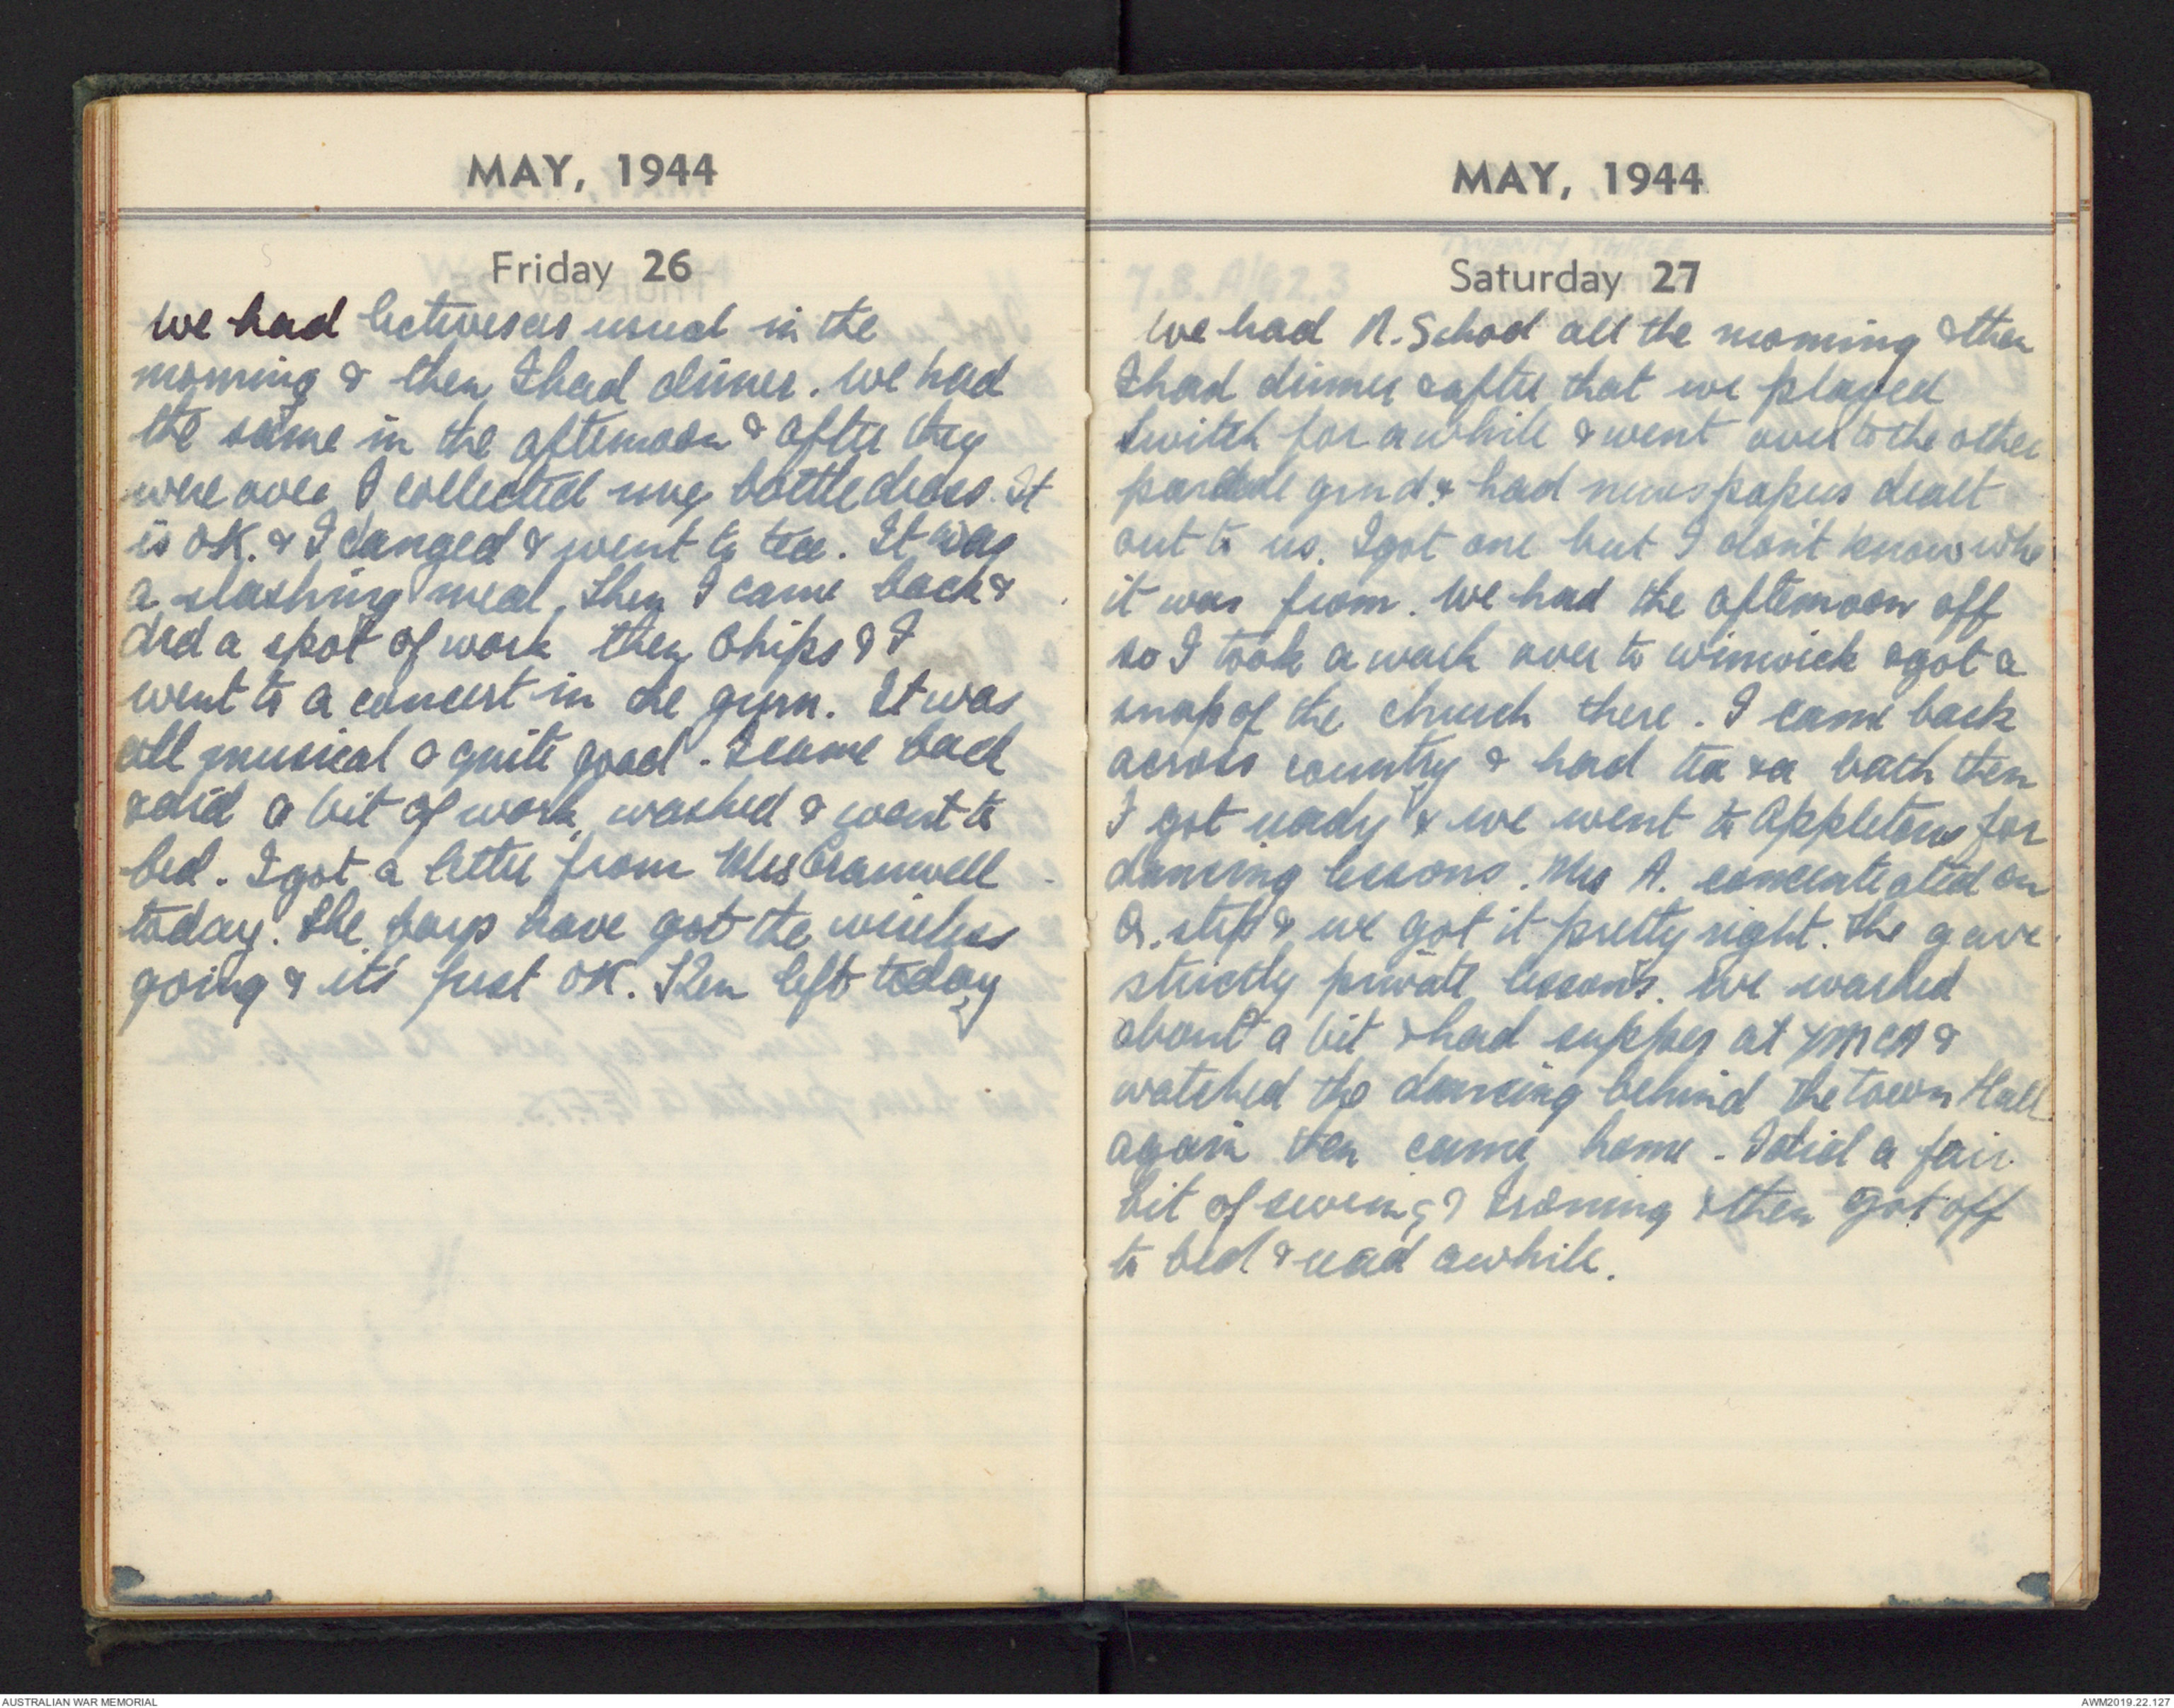 MAY, 1944
Friday 26
We had lectures as usual in the
morning & then I had dinner. We had
the same in the afternoon & after they
were over I collected my battledress. It
is OK. & I canged & went to tea. It was
a slashing meal, then I came back &
did a spot of work then Chips & I
went to a concert in the gym. It was
all musical & quite good. I came back
& did a bit of work, washed & went to
bed. I got a letter from Mrs Cramwell
today. The boys have got the wireless
going & its just OK. Ken left today
MAY, 1944
Saturday 27
7.B. A/G2.3
We had N. School all the morning & then
I had dinner & after that we played
Switch for awhile & went over to the other
parade grnd. & had newspapers dealt
out to us. I got one but I don't know who
it was from. We had the afternoon off
so I took a walk over to Winwick & got a
snap of the church there. I came back
across country & had tea & a bath then
I got ready & we went to Appletons for
dancing lessons. Mrs A. concentrated on
Q. step & we got it pretty right. She gave
strictly private lessons. We walked
about a bit & had supper at YMCA &
watched the dancing behind the Town Hall
again then came home. I did a fair
bit of sewing & Ironing & then got off
to bed & read awhile.
AUSTRALIAN WAR MEMORIAL
AWM2019.22.127